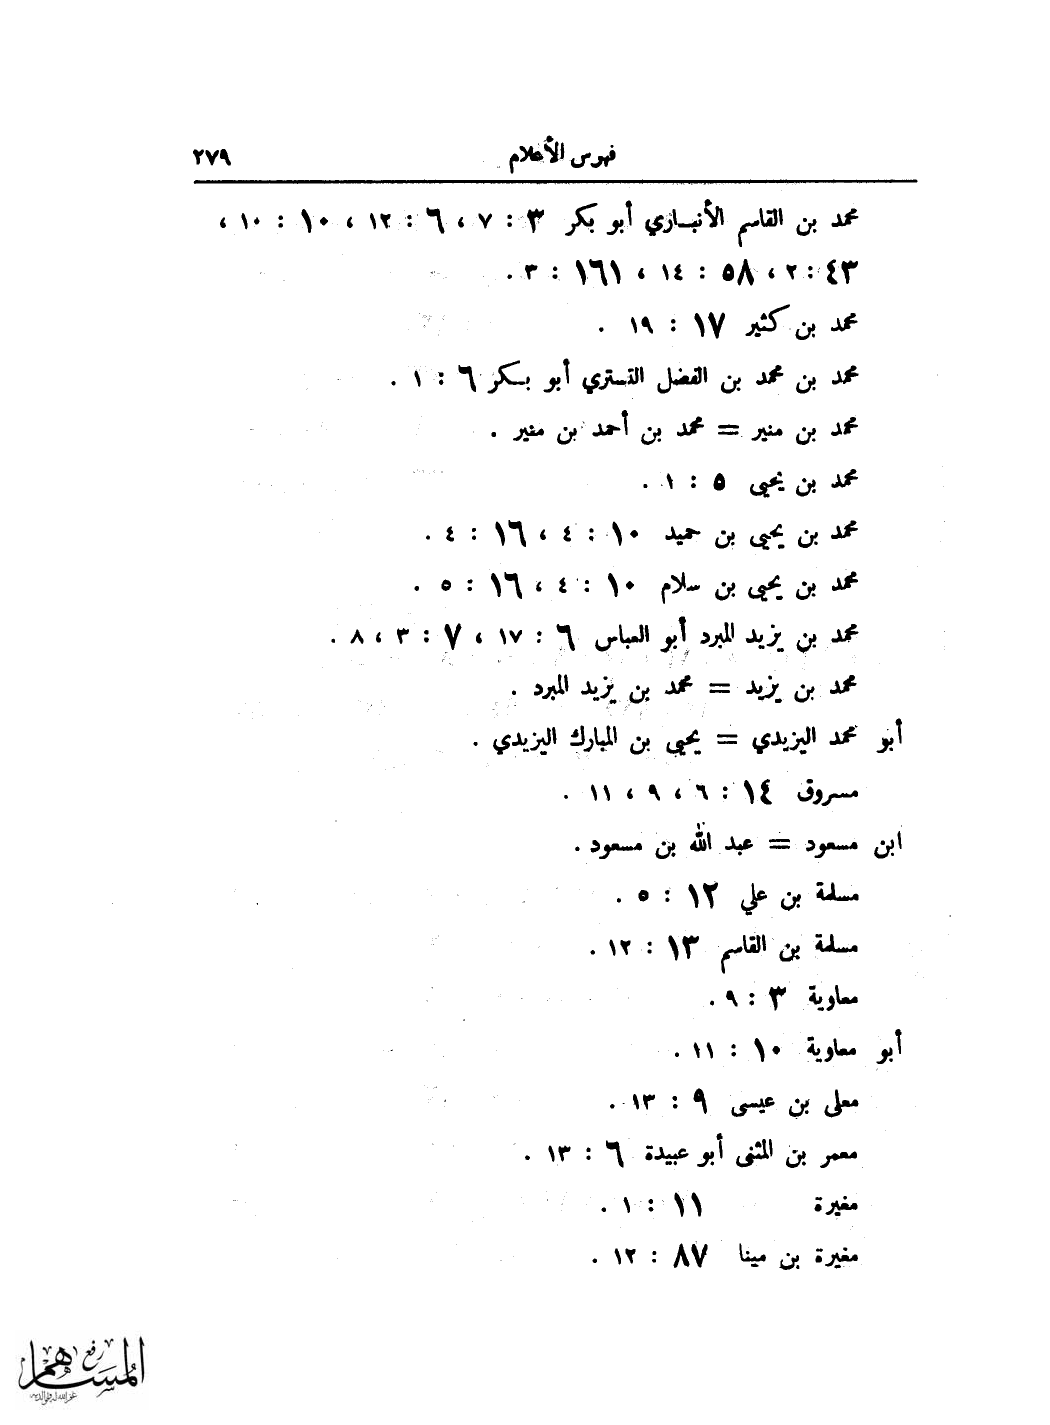 فهوس الأعلام ٢٧٩
محمد بن القاسم الأنبـاري أبو بكر ٣ : ٧ ، ٦ : ١٢ ، ١٠ : ١٠ ،
٤٣ : ٢ ، ٥٨ : ١٤ ، ١٦١ : ٣ .
محمد بن كثير ١٧ : ١٩ .
محمد بن محمد بن الفضل التستري أبو بـكر ٦ : ١ .
محمد بن منير = محمد بن أحمد بن منير .
محمد بن يحيى ٥ : ١ .
محمد بن يحيى بن حميد ١٠ : ٤ ، ١٦ : ٤ .
محمد بن يحيى بن سلام ١٠ : ٤ ، ١٦ : ٥ .
محمد بن يزيد المبرد أبو العباس ٦ : ١٧ ، ٧ : ٣ ، ٨ .
محمد بن يزيد = محمد بن يزيد المبرد .
أبو محمد اليزيدي = يحيى بن المبارك اليزيدي .
مسروق ١٤ : ٦ ، ٩ ، ١١ .
ابن مسعود = عبد الله بن مسعود .
مسلمة بن علي ١٢ : ٥ .
مسلمة بن القاسم ١٣ : ١٢ .
معاوية ٣ : ٩ .
أبو معاوية ١٠ : ١١ .
معلى بن عيسى ٩ : ١٣ .
معمر بن المثنى أبو عبيدة ٦ : ١٣ .
مغيرة ١١ : ١ .
مغيرة بن مينا ٨٧ : ١٢ .
رفع
المساهم